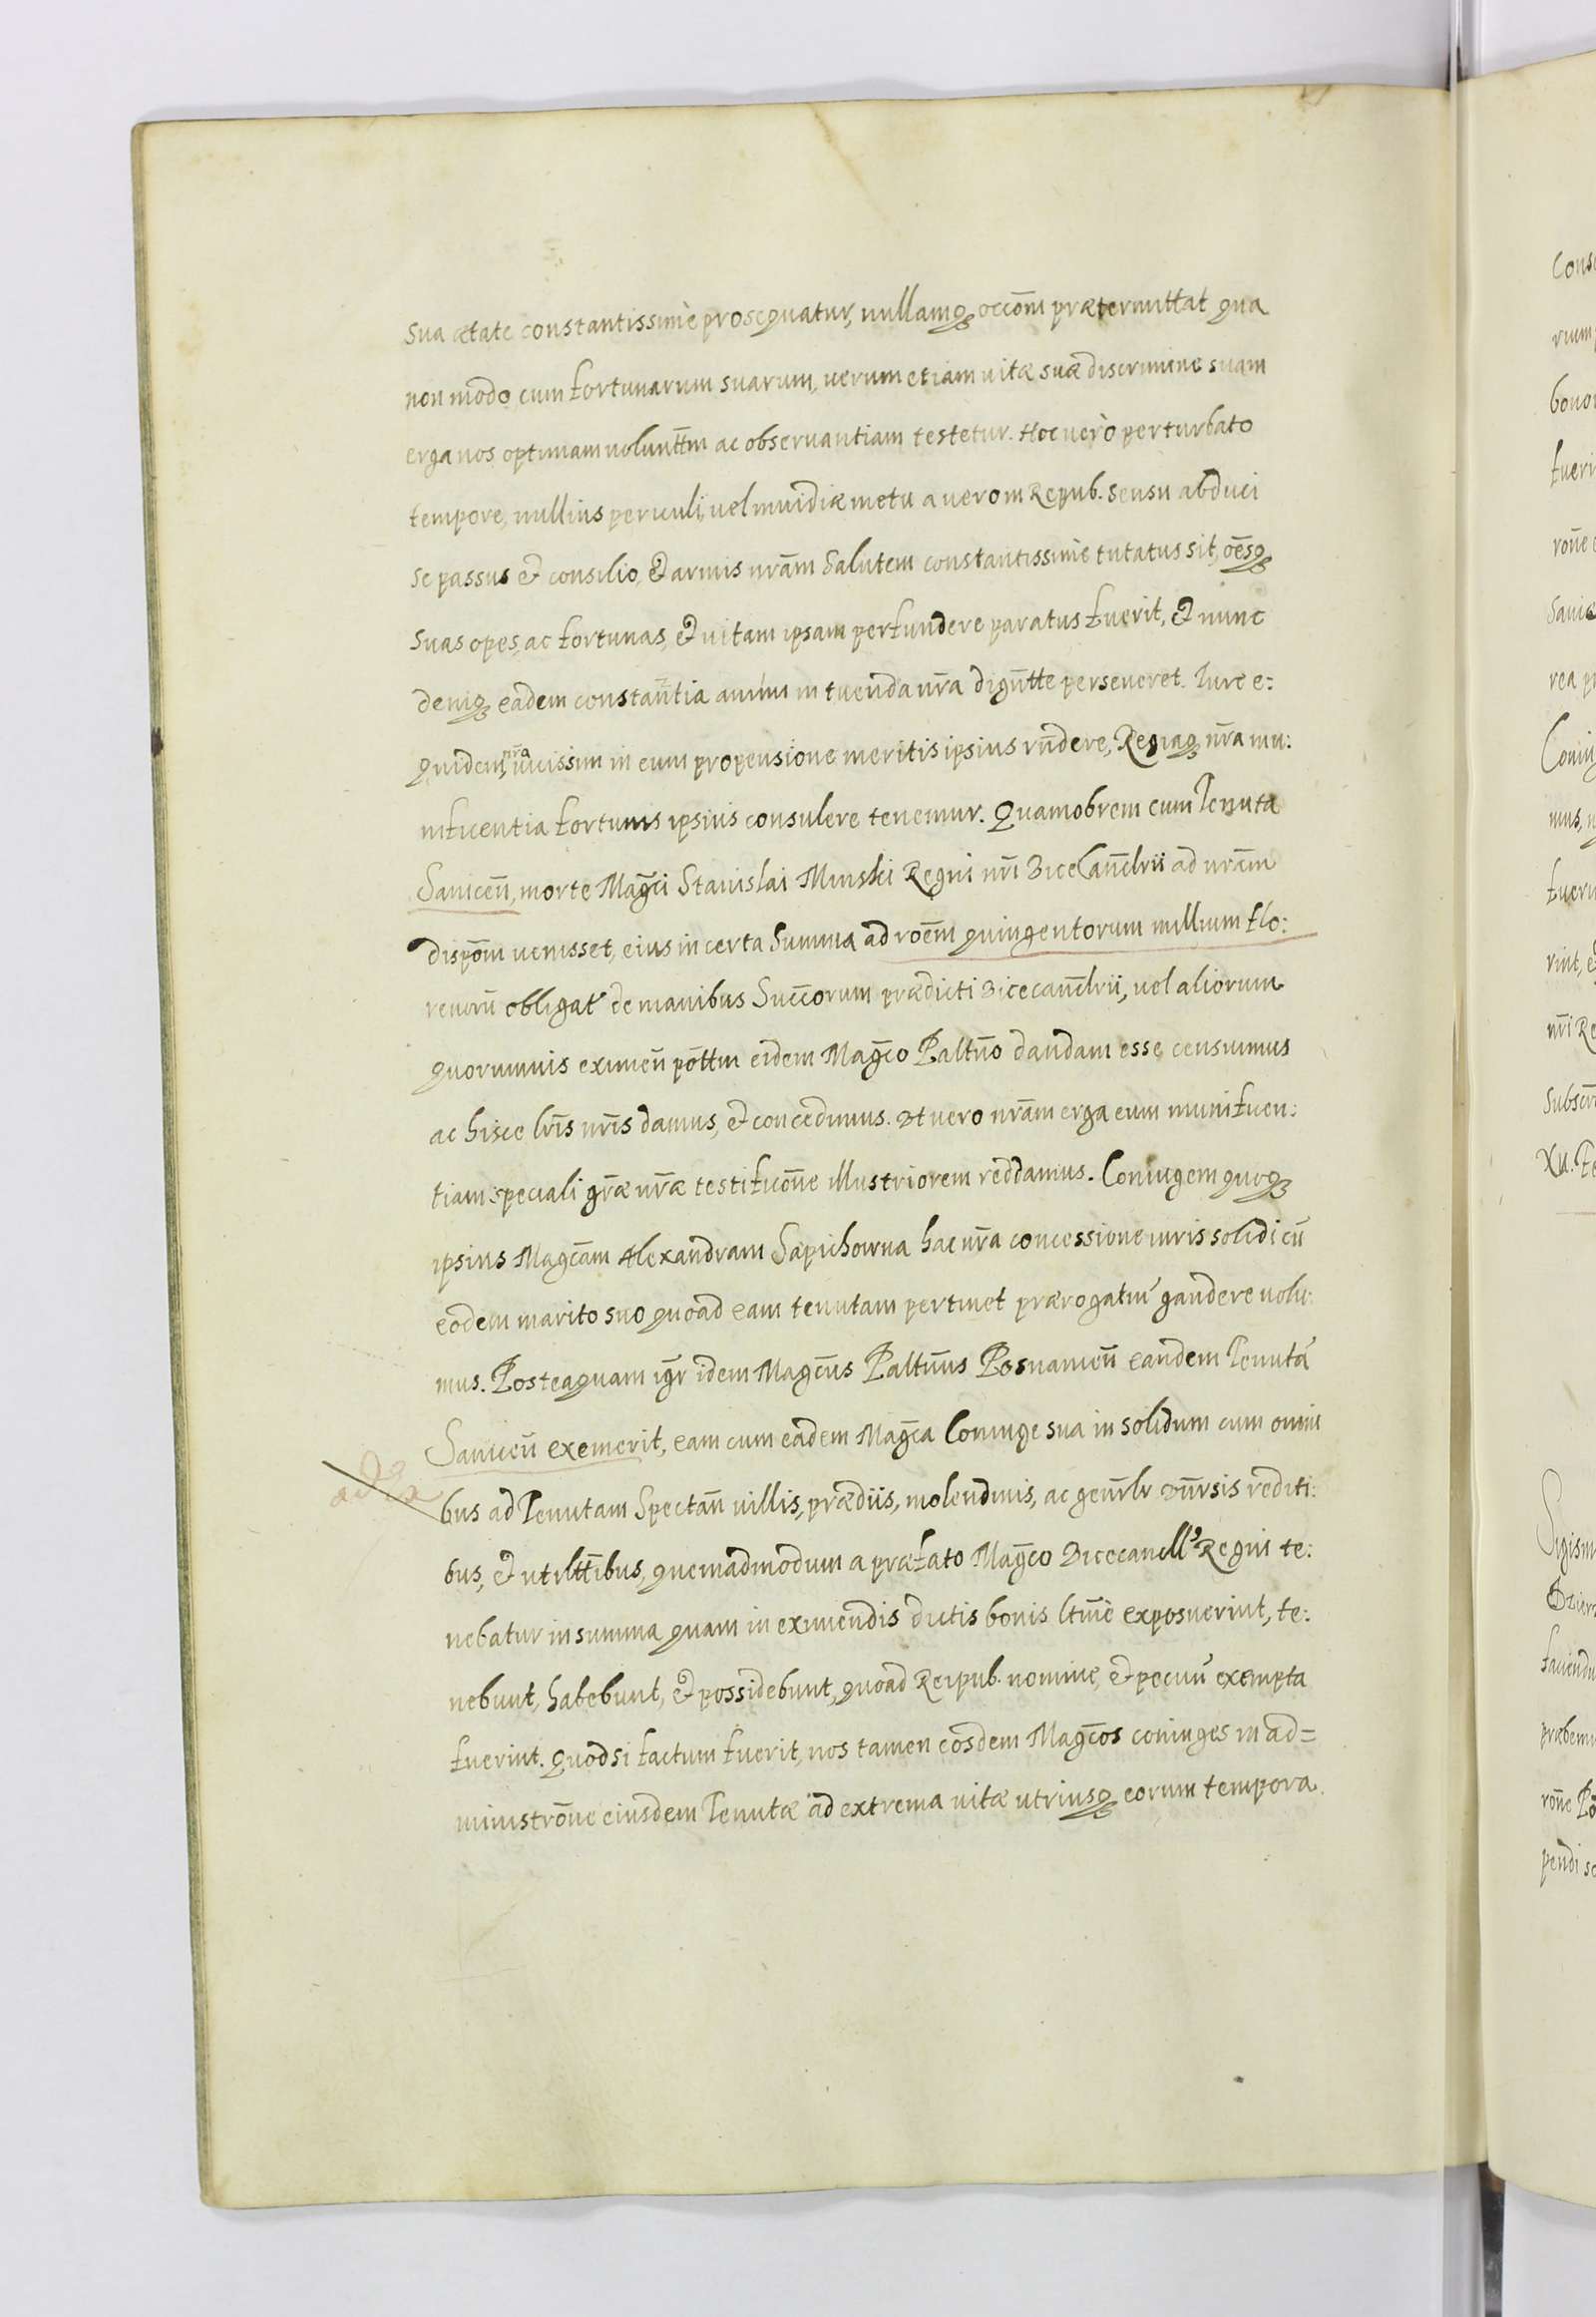 sua ætate constantissimè prosequatur, nullamq₃ occōm prætermittat qua
non modo cum fortunarum suarum, uerum etiam uitæ suæ discrimine suam
erga nos optimam volunttm̄ ac obseruantiam testetur. Hoc uerò perturbato
tempore, nullius periculi, uel inuidiæ metu a uero in Repub. sensu abduci
se passus & consilio, & armis nr̄am Salutem constantissimè tutatus sit, oēsq₃
suas opes, ac fortunas, & uitam ipsam perfundere paratus fuerit, & nunc
deniq₃ eadem constantia animi in tuenda nr̄a dignt̄te perseueret. Iure e:
quidem, nr̄a uicissim in eum propensione meritis ipsius rn̄dere, Regiaq₃ nr̄a mu:
nificentia fortunis ipsius consulere tenemur. Quamobrem cum Tenuta
Sanicen̄, morte Maḡci Stanislai Minski Regni nr̄i Vicecan̄clrii ad nr̄am
dispōm uenisset, eius in certa Summa ad roēm quingentorum millium flo:
renorū obligat' de manibus Succ̄orum prædicti Vicecan̄clrii, uel aliorum
quorumuis eximen̄ pōttm eidem Maḡco Paltn̄o dandam esse censuimus
ac hisce lr̄is nr̄is damus, & concedimus. Vt uero nr̄am erga eum munificen:
tiam speciali gr̄æ nr̄æ testificōne illustriorem reddamus. Coniugem quoq₃
ipsius Magc̄am Alexandram Sapiehowna hac nr̄a concessione iuris solidi cū
eodem marito suo quoad eam tenutam pertinet prærogatiu' gaudere uolu:
mus. Posteaquam igr̄ idem Magc̄us Paltn̄us Posnanien̄ eandem Tenutā
Sanicen̄ exemerit, eam cum eadem Maḡca Coniuge sua in solidum cum omni
bus ad Tenutam Spectan̄ uillis, prædiis, molendinis, ac genr̄lr vn̄rsis rediti:
bus, & utiltt̄ibus, quemadmodum a præfato Maḡco Vicecancll' Regni te:
nebatur in summa quam in eximendis dictis bonis ltm̄è exposuerint, te:
nebunt, habebunt, & possidebunt, quoad Reipub. nomine, & pecun' exempta
fuerint. Quodsi factum fuerit, nos tamen eosdem Magc̄os coniuges in ad=
ministrōne eiusdem Tenutæ ad extrema uitæ utriusq₃ eorum tempora